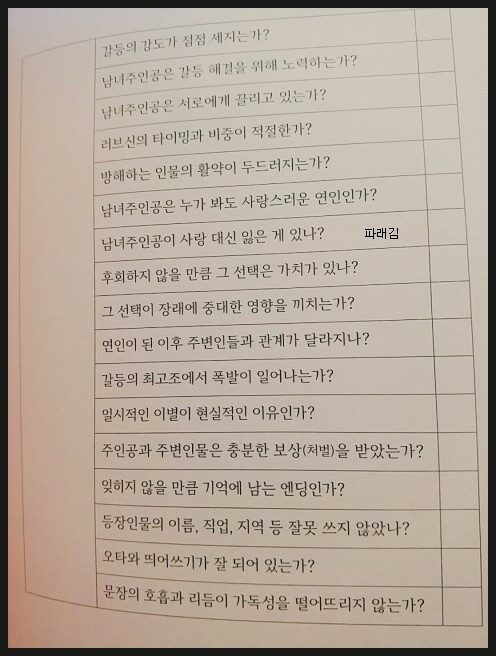 갈등의 강도가 점점 세지는가?
남녀주인공은 갈등 해결을 위해 노력하는가?
남녀주인공은 서로에게 끌리고 있는가?
러브신의 타이밍과 비중이 적절한가?
방해하는 인물의 활약이 두드러지는가?
남녀주인공은 누가 봐도 사랑스러운 연인인가?
남녀주인공이 사랑 대신 잃은 게 있나? 파래김
후회하지 않을 만큼 그 선택은 가치가 있나?
그 선택이 장래에 중대한 영향을 끼치는가?
연인이 된 이후 주변인들과 관계가 달라지나?
갈등의 최고조에서 폭발이 일어나는가?
일시적인 이별이 현실적인 이유인가?
주인공과 주변인물은 충분한 보상(처벌)을 받았는가?
잊히지 않을 만큼 기억에 남는 엔딩인가?
등장인물의 이름, 직업, 지역 등 잘못 쓰지 않았나?
오타와 띄어쓰기가 잘 되어 있는가?
문장의 호흡과 리듬이 가독성을 떨어뜨리지 않는가?